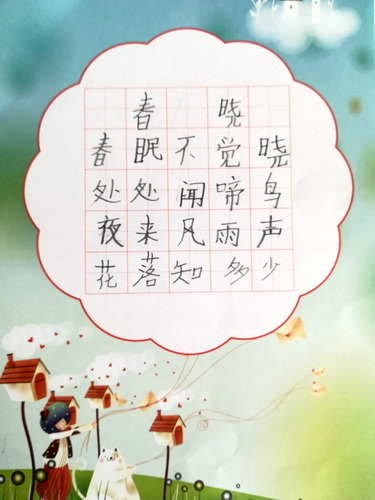 春晓
春眠不觉晓
处处闻啼鸟
夜来凡雨声
花落知多少